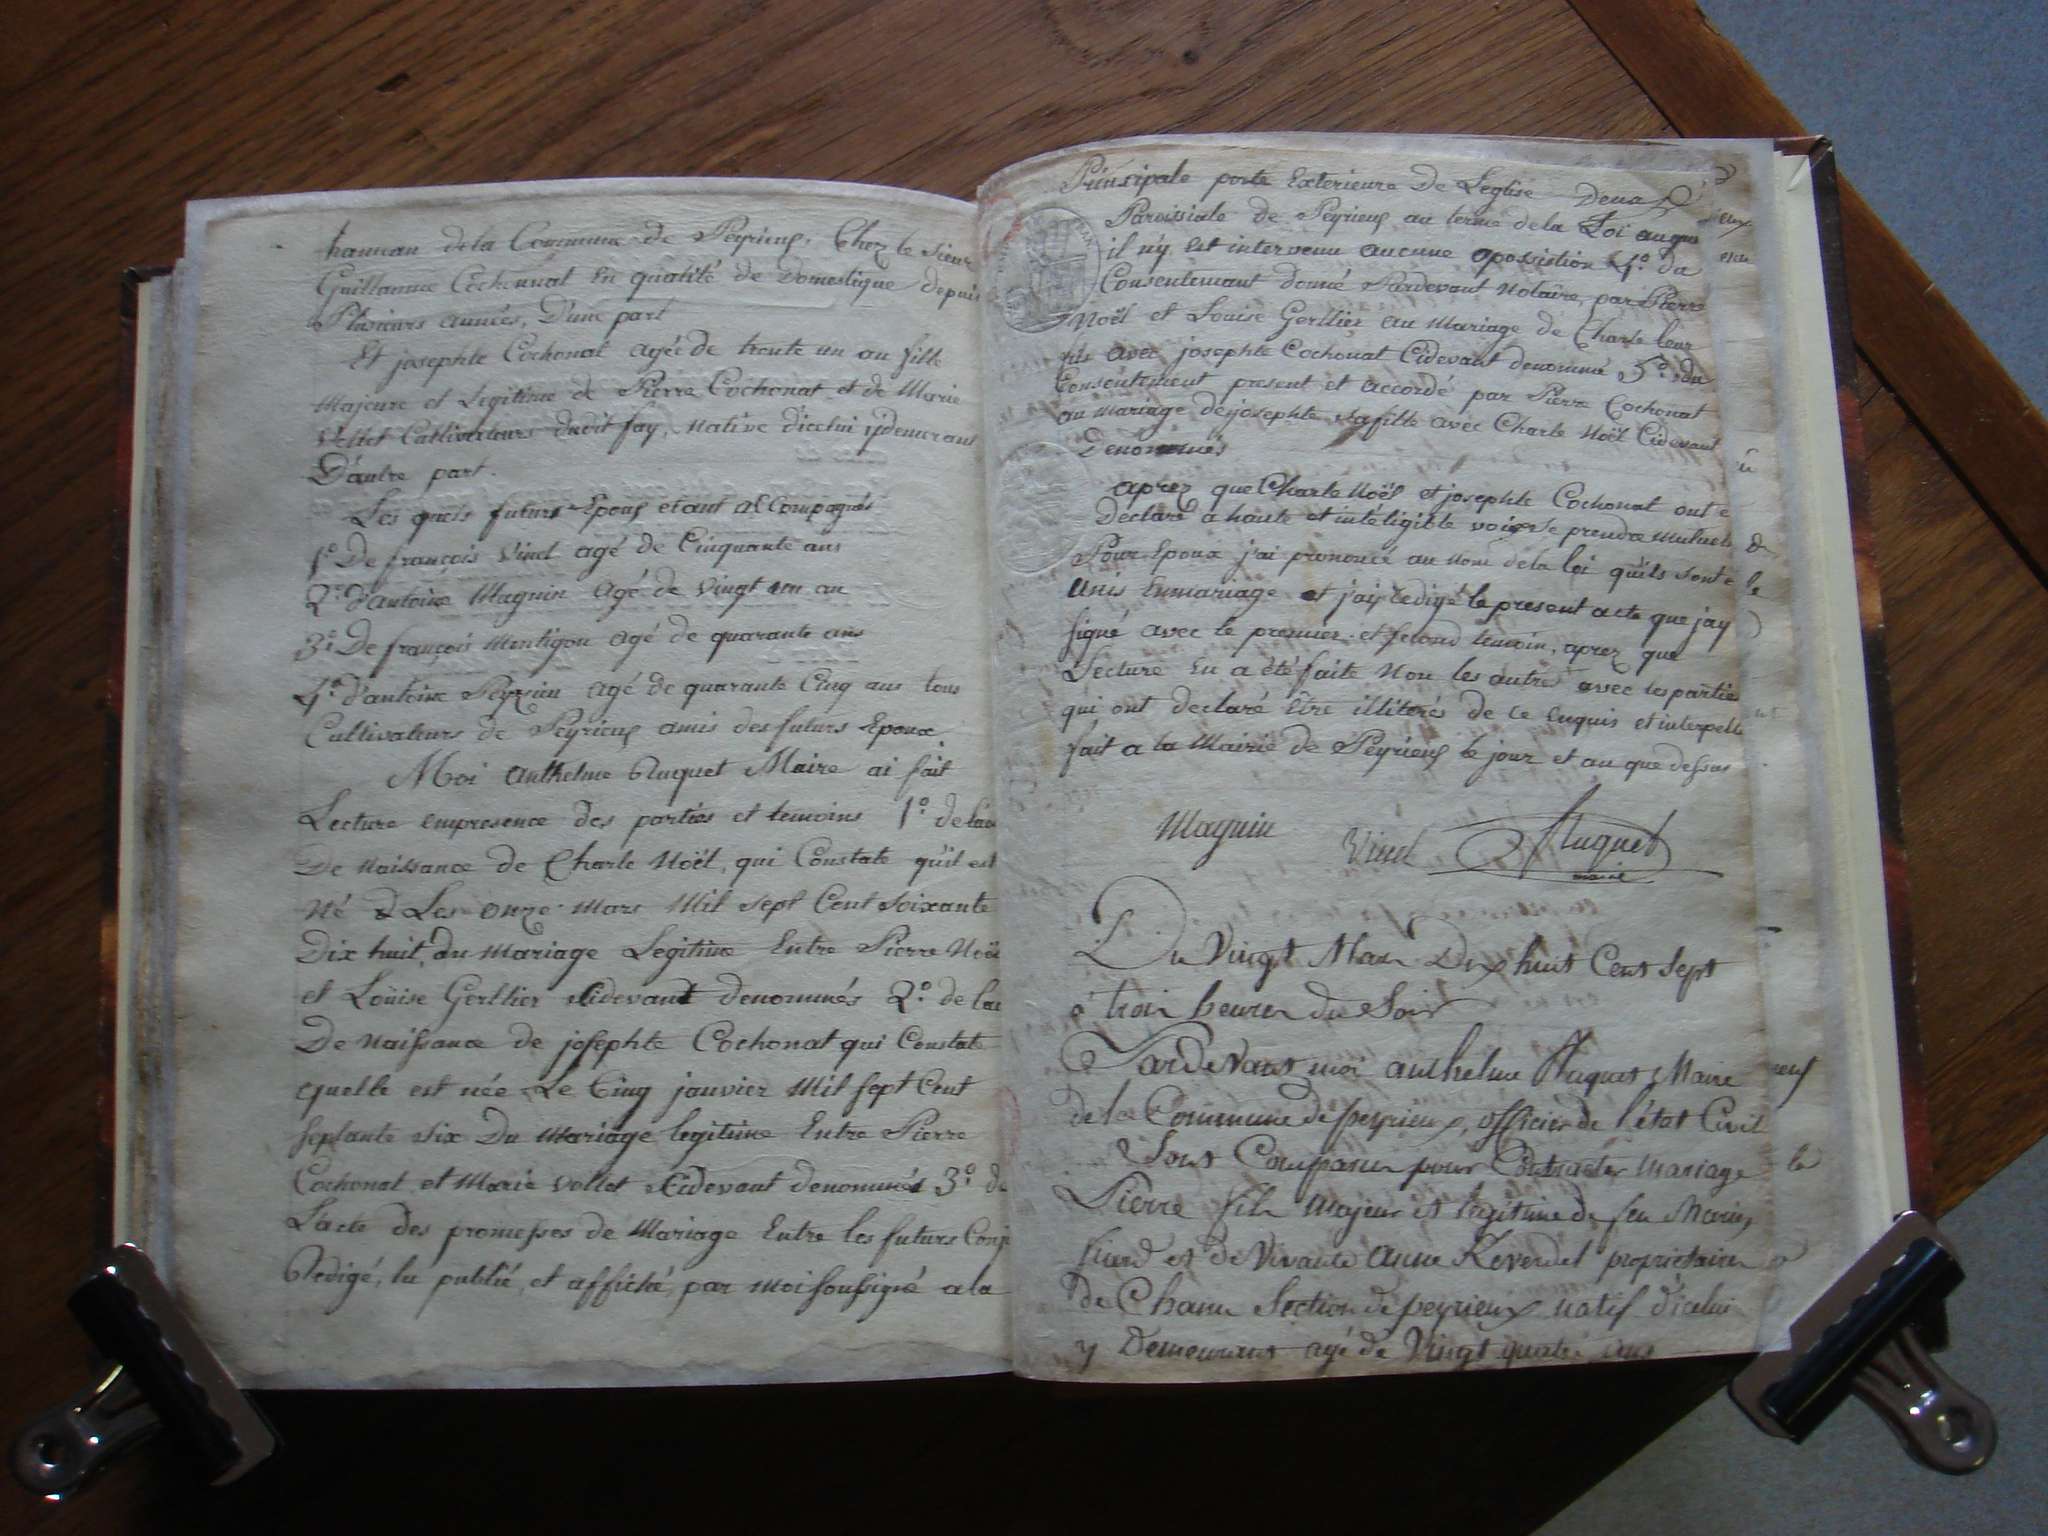 hannan de la Commune de Peyrieus, Chez le Sieur
Guillaume Cochonnat En qualité de Domestique depuis
Plusieurs années, D'une part
Et josephte Cochonat agée de trente un an fille
Majeure et Legitime de Pierre Cochonat et de Marie
Vollet Cultivateurs dudit fay, native d'icelui ydemeurant
D'autre part.
Les quels futurs Epous etant accompagnés
1º De françois Vinel agé de Cinquante ans
2º d'antoine Magnin agé de vingt un an
3º De françois Montigon agé de quarante ans
4º d'antoine Peyrieu agé de quarante Cinq ans tous
Cultivateurs de Peyrieus amis des futurs Epoux
Moi anthelme Huquet Maire ai fait
Lecture empresence des parties et temoins 1º de
De naissance de Charle Noël, qui Constate qu'il est
Né Les onze Mars Mil sept Cent Soixante
Dix huit, du Mariage Legitime Entre Pierre Noël
et Loüise Gerllier Cidevant denommés 2º de
De Naissance de josephte Cochonat qui Constate
quelle est née Le Cinq janvier Mil sept Cent
septante six Du Mariage legitime Entre Pierre
Cochonat et Marie Vollet Cidevant denommés 3º de
L'acte des promesses de Mariage Entre les futurs Conj
Redigé, lu publié, et affiché, par moi soussigné a la
Principale porte Exterieure De L'eglise
Paroissiale de Peyrieus au terme de la Loi auquel
il n'y est intervenu aucune opossistion 4º du
Consentemant donné Pardevant Notaire, par Pierre
Noël et Louise Gerllier au Mariage de Charle leur
fils avec josephte Cochonat Cidevant denommé 5º du
Consentement present et accordé par Pierre Cochonat
au mariage de josephte sa fille avec Charle Noël Cidevant
Denommés
aprez que Charle Noël et josephte Cochonat ont e
Declaré a haute et intéligible voix se prendre mutuel
Pour Epoux j'ai prononcé au nom de la loi qu'ils sont e
unis En mariage et j'ay redigé le present acte que jay
signé avec le premier et second temoin, aprez que
Lecture En a été faite Non les autre avec les parties
qui ont declaré être illiterés de ce Enquis et interpellé
fait a la Mairie de Peyrieus le jour et an que dessus
Magnin
Vinel Huquet
maire
Du Vingt Mars Dix huit Cent Sept
à trois heures du Soir
Pardevant moi anthelme Huquet Maire
de la Commune de peyrieux, officier de l'état Civil
Sont Comparus pour Contracter Mariage
Pierre fils Majeur et legitime de feu Marin
et de Vivante Anne Reverdel proprietaires
de Chanu Section de peyrieux natif d'icelui
y Demeurant agé de Vingt quatre ans